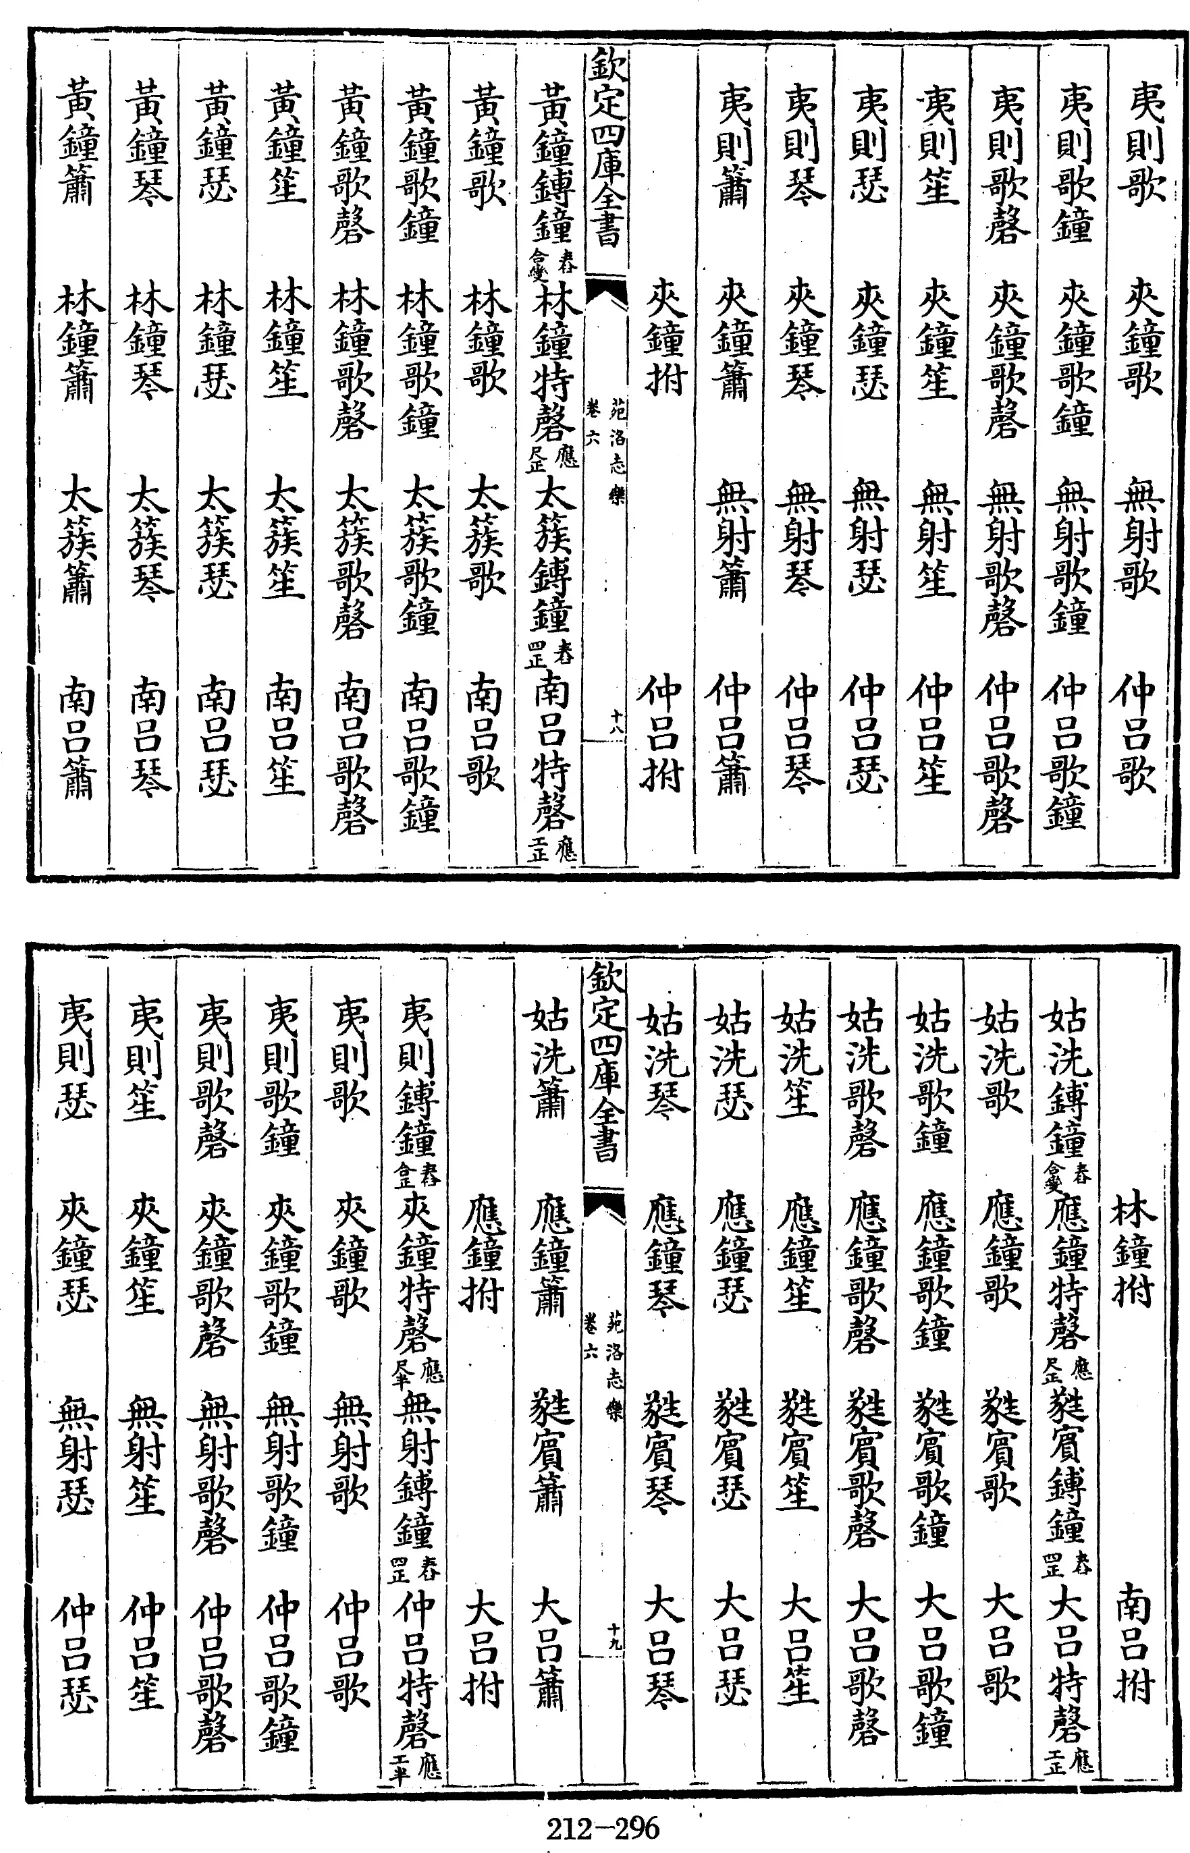 夷則歌 夾鐘歌 無射歌 仲呂歌
夷則歌鐘 夾鐘歌鐘 無射歌鐘 仲呂歌鐘
夷則歌磬 夾鐘歌磬 無射歌磬 仲呂歌磬
夷則笙 夾鐘笙 無射笙 仲呂笙
夷則瑟 夾鐘瑟 無射瑟 仲呂瑟
夷則琴 夾鐘琴 無射琴 仲呂琴
夷則簫 夾鐘簫 無射簫 仲呂簫
夾鐘拊 仲呂拊
欽定四庫全書 苑洛志樂 卷六 十八
黃鐘鎛鐘舂合變 林鐘特磬應尺正 太簇鎛鐘舂四正 南呂特磬應工正
黃鐘歌 林鐘歌 太簇歌 南呂歌
黃鐘歌鐘 林鐘歌鐘 太簇歌鐘 南呂歌鐘
黃鐘歌磬 林鐘歌磬 太簇歌磬 南呂歌磬
黃鐘笙 林鐘笙 太簇笙 南呂笙
黃鐘瑟 林鐘瑟 太簇瑟 南呂瑟
黃鐘琴 林鐘琴 太簇琴 南呂琴
黃鐘簫 林鐘簫 太簇簫 南呂簫
林鐘拊 南呂拊
姑洗鎛鐘舂合變 應鐘特磬應尺正 蕤賓鎛鐘舂四正 大呂特磬應工正
姑洗歌 應鐘歌 蕤賓歌 大呂歌
姑洗歌鐘 應鐘歌鐘 蕤賓歌鐘 大呂歌鐘
姑洗歌磬 應鐘歌磬 蕤賓歌磬 大呂歌磬
姑洗笙 應鐘笙 蕤賓笙 大呂笙
姑洗瑟 應鐘瑟 蕤賓瑟 大呂瑟
姑洗琴 應鐘琴 蕤賓琴 大呂琴
欽定四庫全書 苑洛志樂 卷六 十九
姑洗簫 應鐘簫 蕤賓簫 大呂簫
應鐘拊 大呂拊
夷則鎛鐘舂合正 夾鐘特磬應尺半 無射鎛鐘舂四正 仲呂特磬應工半
夷則歌 夾鐘歌 無射歌 仲呂歌
夷則歌鐘 夾鐘歌鐘 無射歌鐘 仲呂歌鐘
夷則歌磬 夾鐘歌磬 無射歌磬 仲呂歌磬
夷則笙 夾鐘笙 無射笙 仲呂笙
夷則瑟 夾鐘瑟 無射瑟 仲呂瑟
212-296